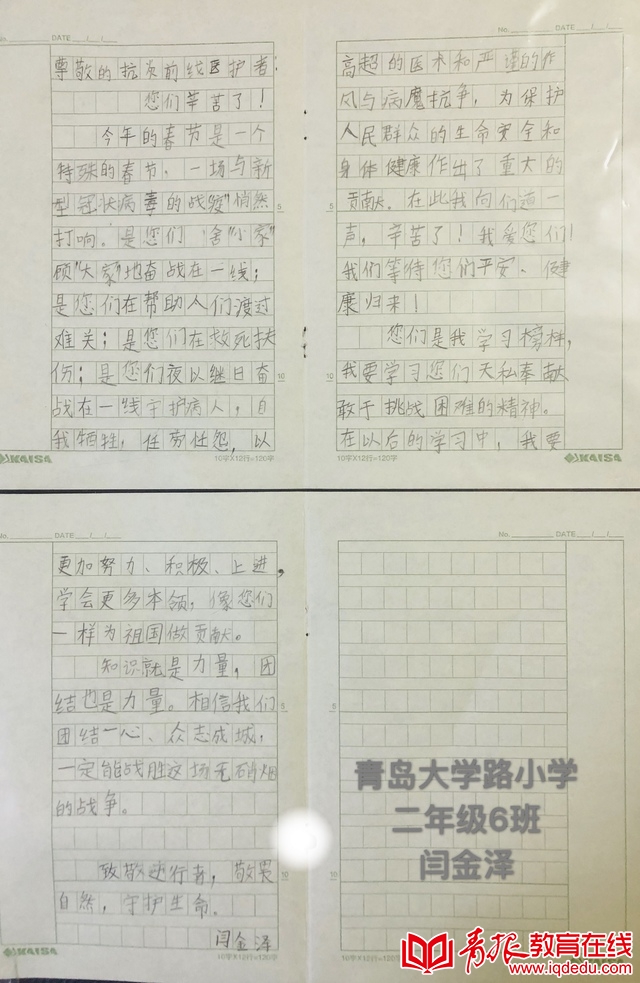 No. DATE / /
尊敬的抗炎前线医护者:
您们辛苦了!
今年的春节是一个
特殊的春节、一场与新
型冠状病毒的战疫"悄然
打响。是您们 舍"小家"
顾"大家"地奋战在一线;
是您们在帮助人们渡过
难关;是您们在救死扶
伤;是您们夜以继日奋
战在一线守护病人,自
我牺牲,任劳任怨,以
KAISA
10字X12行=120字
No. DATE / /
高超的医术和严谨的作
风与病魔抗争,为保护
人民群众的生命安全和
身体健康作出了重大的
贡献。在此我向们道一
声,辛苦了!我爱您们!
我们等待您们平安、健
康归来!
您们是我学习榜样,
我要学习您们天私奉献
敢于挑战困难的精神。
在以后的学习中,我要
10字X12行=120字
KAISA
No. DATE / /
更加努力、积极、上进,
学会更多本领,像您们
一样为祖国做贡献。
知识就是力量,团
结也是力量。相信我们
团结一心、众志成城,
一定能战胜这场无硝烟
的战争。
致敬逆行者,敬畏
自然,守护生命。
闫金泽
KAISA
10字X12行=120字
No. DATE / /
青岛大学路小学
二年级6班
闫金泽
10字X12行=120字
青报教育在线
www.iqdedu.com